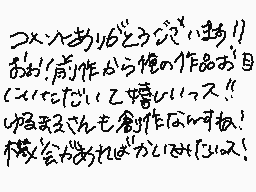 コメントありがとうございます!!
おお!前作から俺の作品お目
にいただいて嬉しいっス!!
ゆるまるさんも創作なんすね!
機会があればかいてみたいっス!